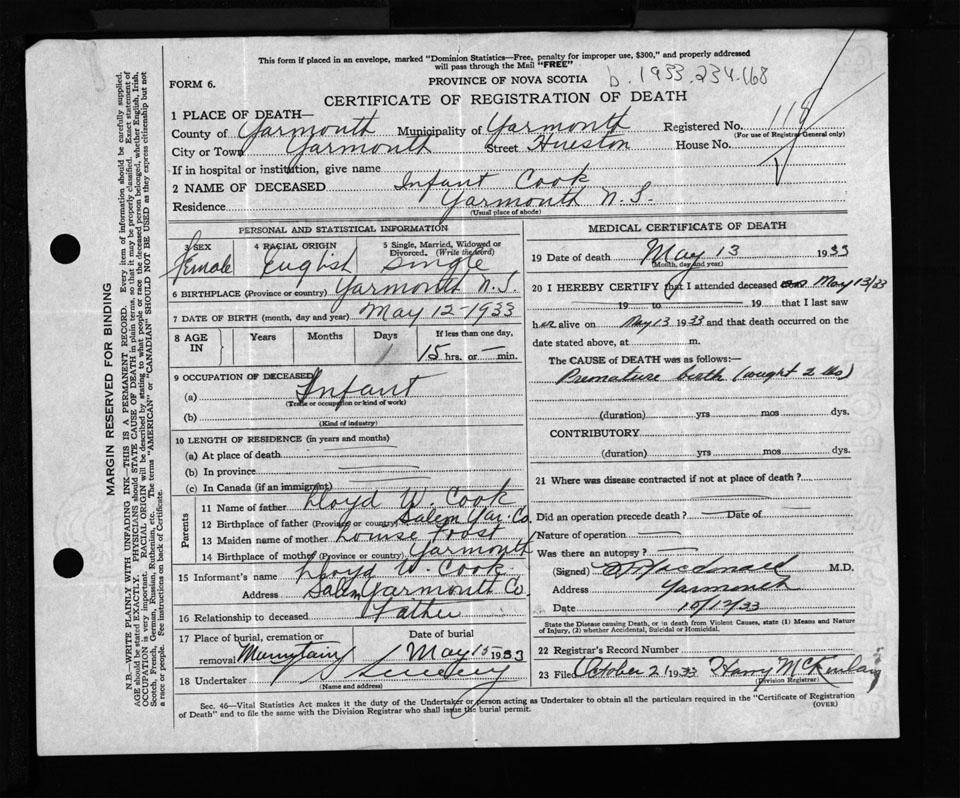 This form if placed in an envelope, marked "Dominion Statistics—Free, penalty for improper use, $300," and properly addressed
will pass through the Mail "FREE"
b. 1933.234.168
FORM 6.
PROVINCE OF NOVA SCOTIA
CERTIFICATE OF REGISTRATION OF DEATH
1 PLACE OF DEATH—
County of Yarmouth Municipality of Yarmouth Registered No. 118
(For use of Registrar General only)
City or Town Yarmouth Street Hueston House No.
If in hospital or institution, give name
2 NAME OF DECEASED Infant Cook
Residence Yarmouth N.S.
(Usual place of abode)
PERSONAL AND STATISTICAL INFORMATION
3 SEX female
4 RACIAL ORIGIN English
5 Single, Married, Widowed or Divorced. (Write the word) Single
6 BIRTHPLACE (Province or country) Yarmouth N.S.
7 DATE OF BIRTH (month, day and year) May 12-1933
8 AGE IN
Years Months Days If less than one day,
15 hrs. or — min.
9 OCCUPATION OF DECEASED
(a) Infant
(Trade or occupation or kind of work)
(b)
(Kind of industry)
10 LENGTH OF RESIDENCE (in years and months)
(a) At place of death
(b) In province
(c) In Canada (if an immigrant)
Parents
11 Name of father Lloyd W. Cook
12 Birthplace of father (Province or country) Salem Yar. Co.
13 Maiden name of mother Louise Frost
14 Birthplace of mother (Province or country) Yarmouth
15 Informant's name Lloyd W. Cook
Address Salem Yarmouth Co.
16 Relationship to deceased Father
17 Place of burial, cremation or removal
Date of burial May 15 1933
18 Undertaker
(Name and address)
MEDICAL CERTIFICATE OF DEATH
19 Date of death May 13 1933
(Month, day and year)
20 I HEREBY CERTIFY that I attended deceased May 13/33
19 to 19 that I last saw
her alive on May 13 1933 and that death occurred on the
date stated above, at m.
The CAUSE of DEATH was as follows:—
Premature birth (weight 2 lbs)
(duration) yrs mos dys.
CONTRIBUTORY
(duration) yrs mos dys.
21 Where was disease contracted if not at place of death?
Did an operation precede death? Date of
Nature of operation
Was there an autopsy?
(Signed) Macdonald M.D.
Address Yarmouth
Date 10/12/33
State the Disease causing Death, or in death from Violent Causes, state (1) Means and Nature
of Injury, (2) whether Accidental, Suicidal or Homicidal.
22 Registrar's Record Number
23 Filed October 2 1933 Harry
(Division Registrar)
Sec. 46—Vital Statistics Act makes it the duty of the Undertaker or person acting as Undertaker to obtain all the particulars required in the "Certificate of Registration
of Death" and to file the same with the Division Registrar who shall issue the burial permit.
(OVER)
MARGIN RESERVED FOR BINDING
N.B.—WRITE PLAINLY WITH UNFADING INK—THIS IS A PERMANENT RECORD. Every item of information should be carefully supplied.
AGE should be stated EXACTLY. PHYSICIANS should STATE CAUSE OF DEATH in plain terms, so that it may be properly classified. Exact statement of
OCCUPATION is very important. RACIAL ORIGIN will be described by stating to what people or race the deceased person belonged, whether English, Irish,
Scotch, French, German, Russian, Ruthenian, etc. The terms "AMERICAN" or "CANADIAN" SHOULD NOT BE USED as they express citizenship but not
a race or people. See instructions on back of Certificate.